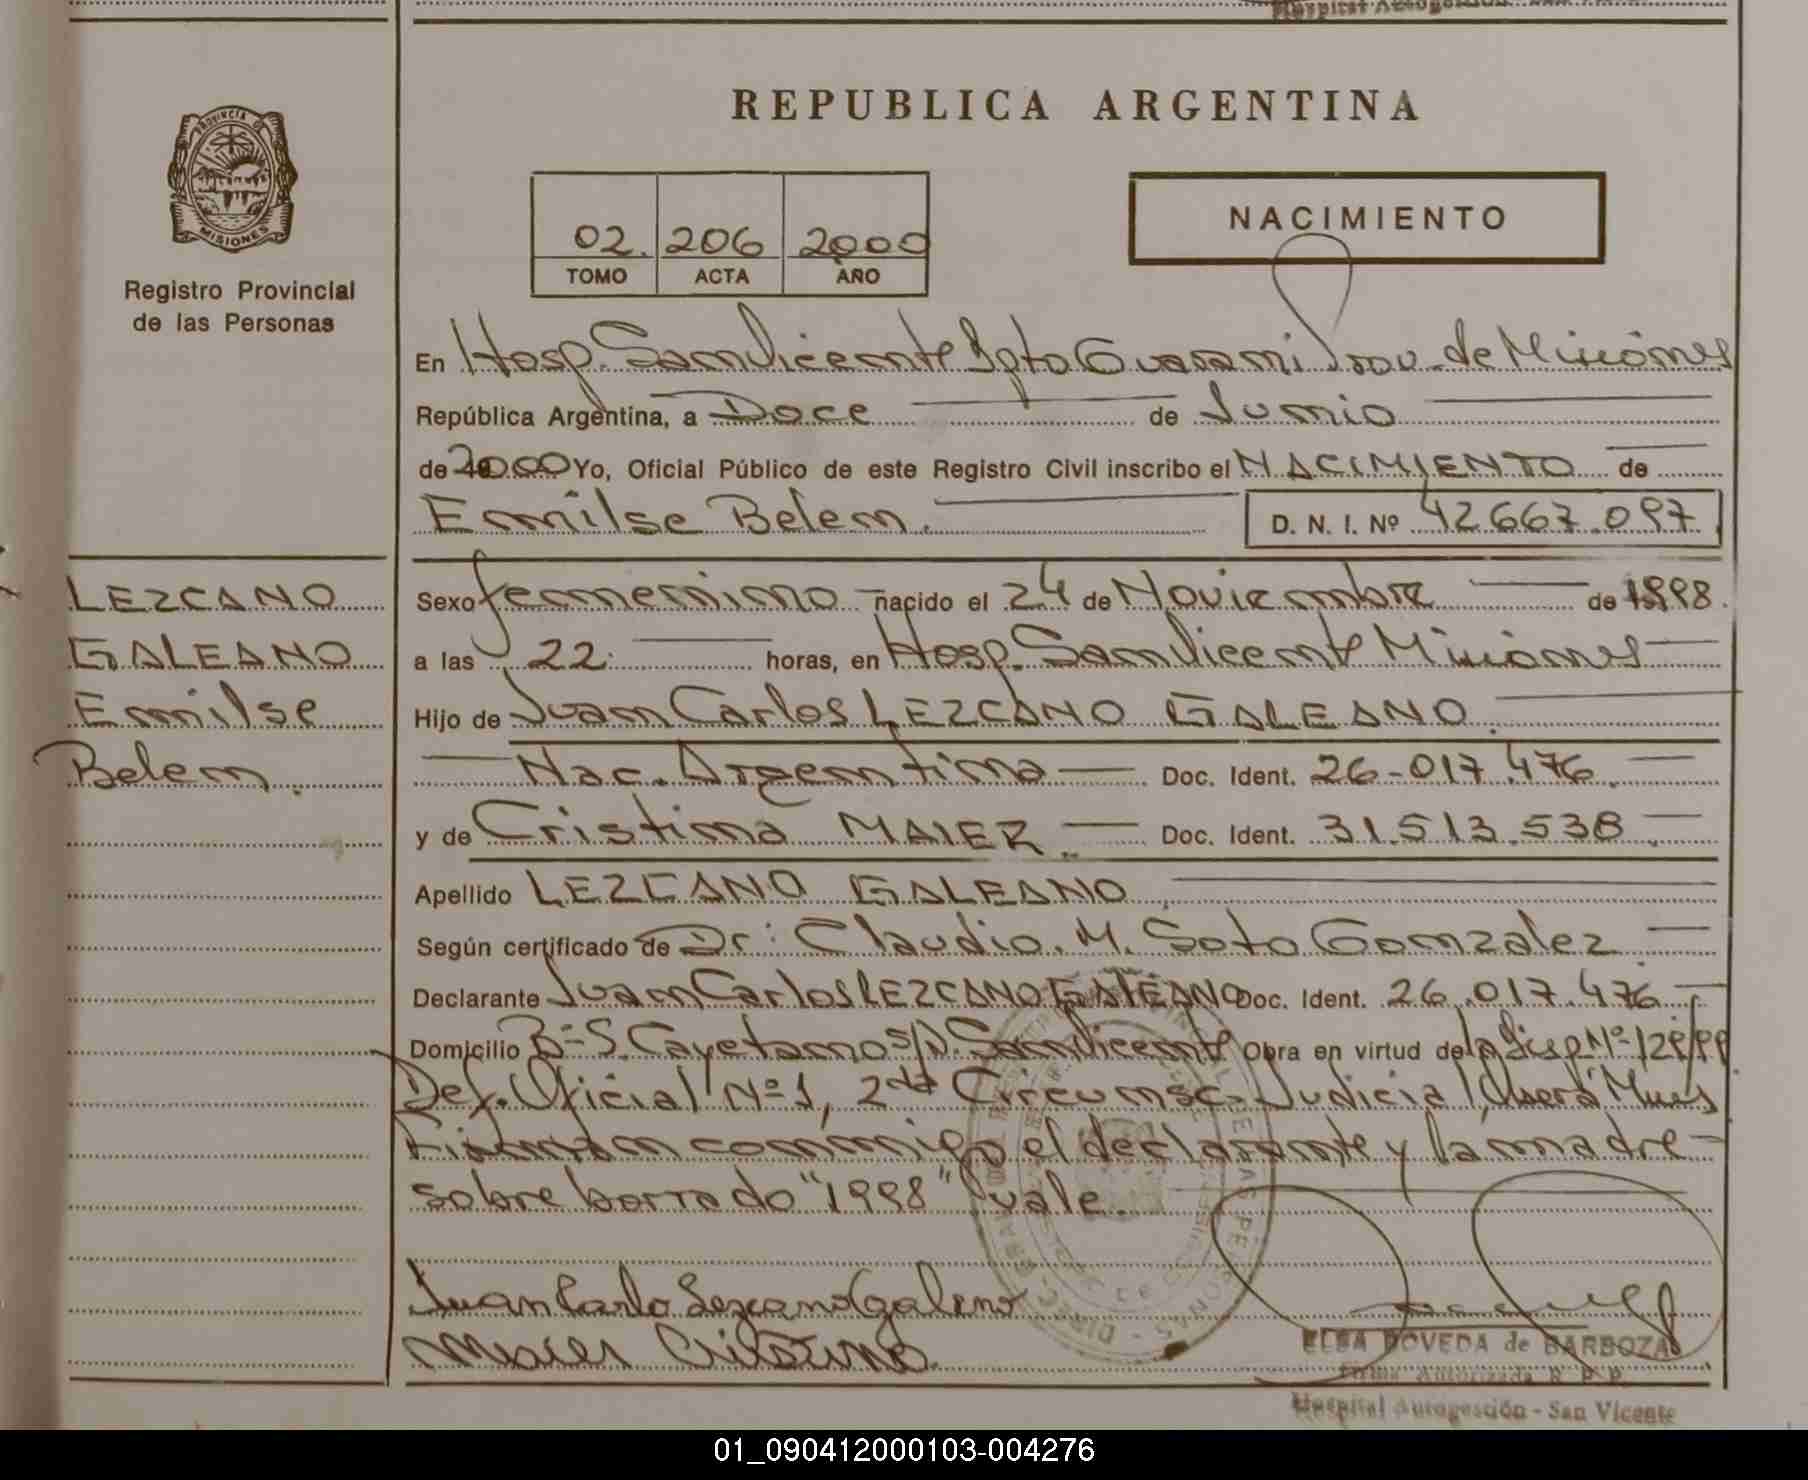 Hospital Autogestión San
REPUBLICA ARGENTINA
PROVINCIA DE
MISIONES
Registro Provincial
de las Personas
NACIMIENTO
02. 206 2000
TOMO ACTA AÑO
En Hosp. San Vicente Dpto Guarani Prov. de Misiones
República Argentina, a Doce de Junio
de 2000 Yo, Oficial Público de este Registro Civil inscribo el NACIMIENTO de
Emilse Belem. D. N. I. Nº 42667.097
LEZCANO
GALEANO
Emilse
Belem.
Sexo femenino nacido el 24 de Noviembre de 1998.
a las 22 horas, en Hosp. San Vicente Misiones
Hijo de Juan Carlos LEZCANO GALEANO.
Nac. Argentina Doc. Ident. 26-017.476.
y de Cristina MAIER Doc. Ident. 31.513.538
Apellido LEZCANO GALEANO
Según certificado de Dr: Claudio. M. Soto Gonzalez
Declarante Juan Carlos LEZCANO GALEANO Doc. Ident. 26.017.476
Domicilio Bº S. Cayetano s/n. San Vicente Obra en virtud de la Disp. Nº 129/99
Def. Oficial Nº 1, 2da Circunsc. Judicial Oberá Mnes
Firman conmigo el declarante y la madre
sobre borrado "1998" vale.
Juan Carlo Lezcano Galeano
Maier Cristina
ELSA POVEDA de BARBOZA
Firma Autorizada R. P. P.
Hospital Autogestión - San Vicente
01_090412000103-004276